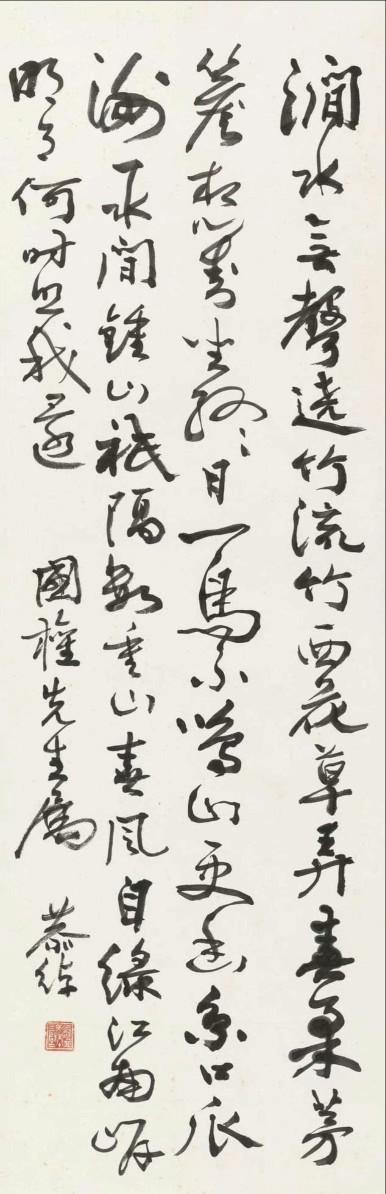 澗水無聲遶竹流竹西花草弄春柔茅
簷相對坐終日一鳥不鳴山更幽京口瓜
洲一水間鍾山祇隔數重山春風自綠江南岸
明月何時照我還
國權先生屬
恭綽